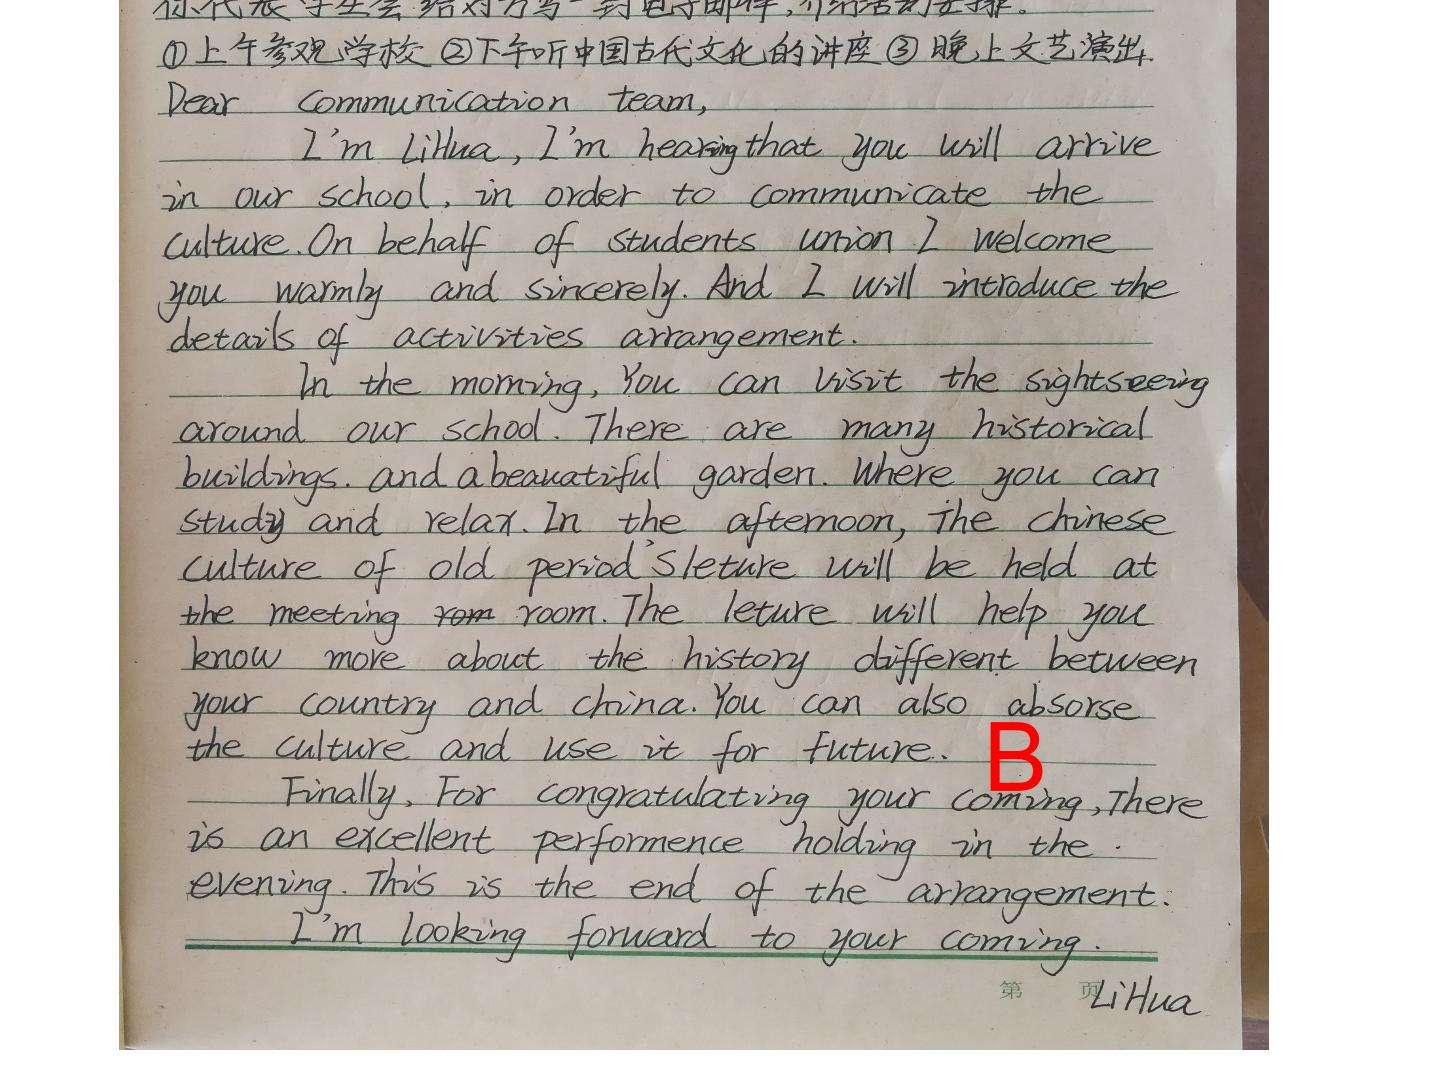 你代表学生会给对方写一封电子邮件,介绍活动安排。
①上午参观学校 ②下午听中国古代文化的讲座 ③ 晚上文艺演出.
Dear communication team,
I'm LiHua, I'm hearing that you will arrive
in our school, in order to communicate the
culture. On behalf of students union I welcome
you warmly and sincerely. And I will introduce the
details of activities arrangement.
In the morning, You can visit the sightseeing
around our school. There are many historical
buildings. and a beauatiful garden. Where you can
study and relax. In the afternoon, The chinese
culture of old period's leture will be held at
the meeting rom room. The leture will help you
know more about the history different between
your country and china. You can also absorse
the culture and use it for future.
B
Finally, For congratulating your coming, There
is an excellent performence holding in the
evening. This is the end of the arrangement.
I'm looking forward to your coming.
第 页
LiHua